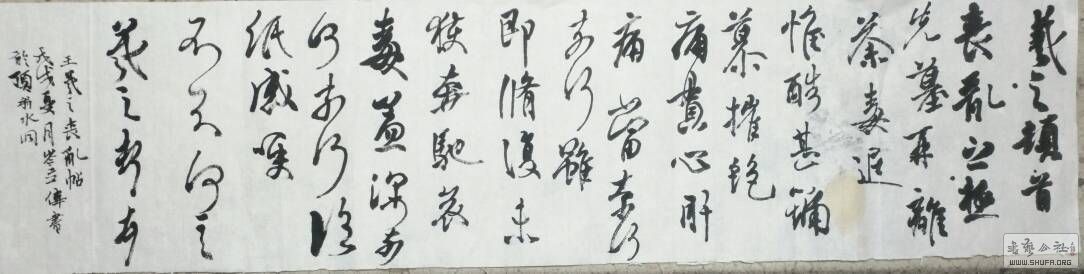 羲之頓首
喪亂之極
先墓再離
荼毒追
惟酷甚號
慕摧絕
痛貫心肝
痛當奈何
奈何雖
即脩復未
獲奔馳哀
毒益深奈
何奈何臨
紙感哽
不知何言
羲之頓首頓首
王羲之喪亂帖
戊戌夏月書
於
书艺公社
WWW.SHUFA.ORG